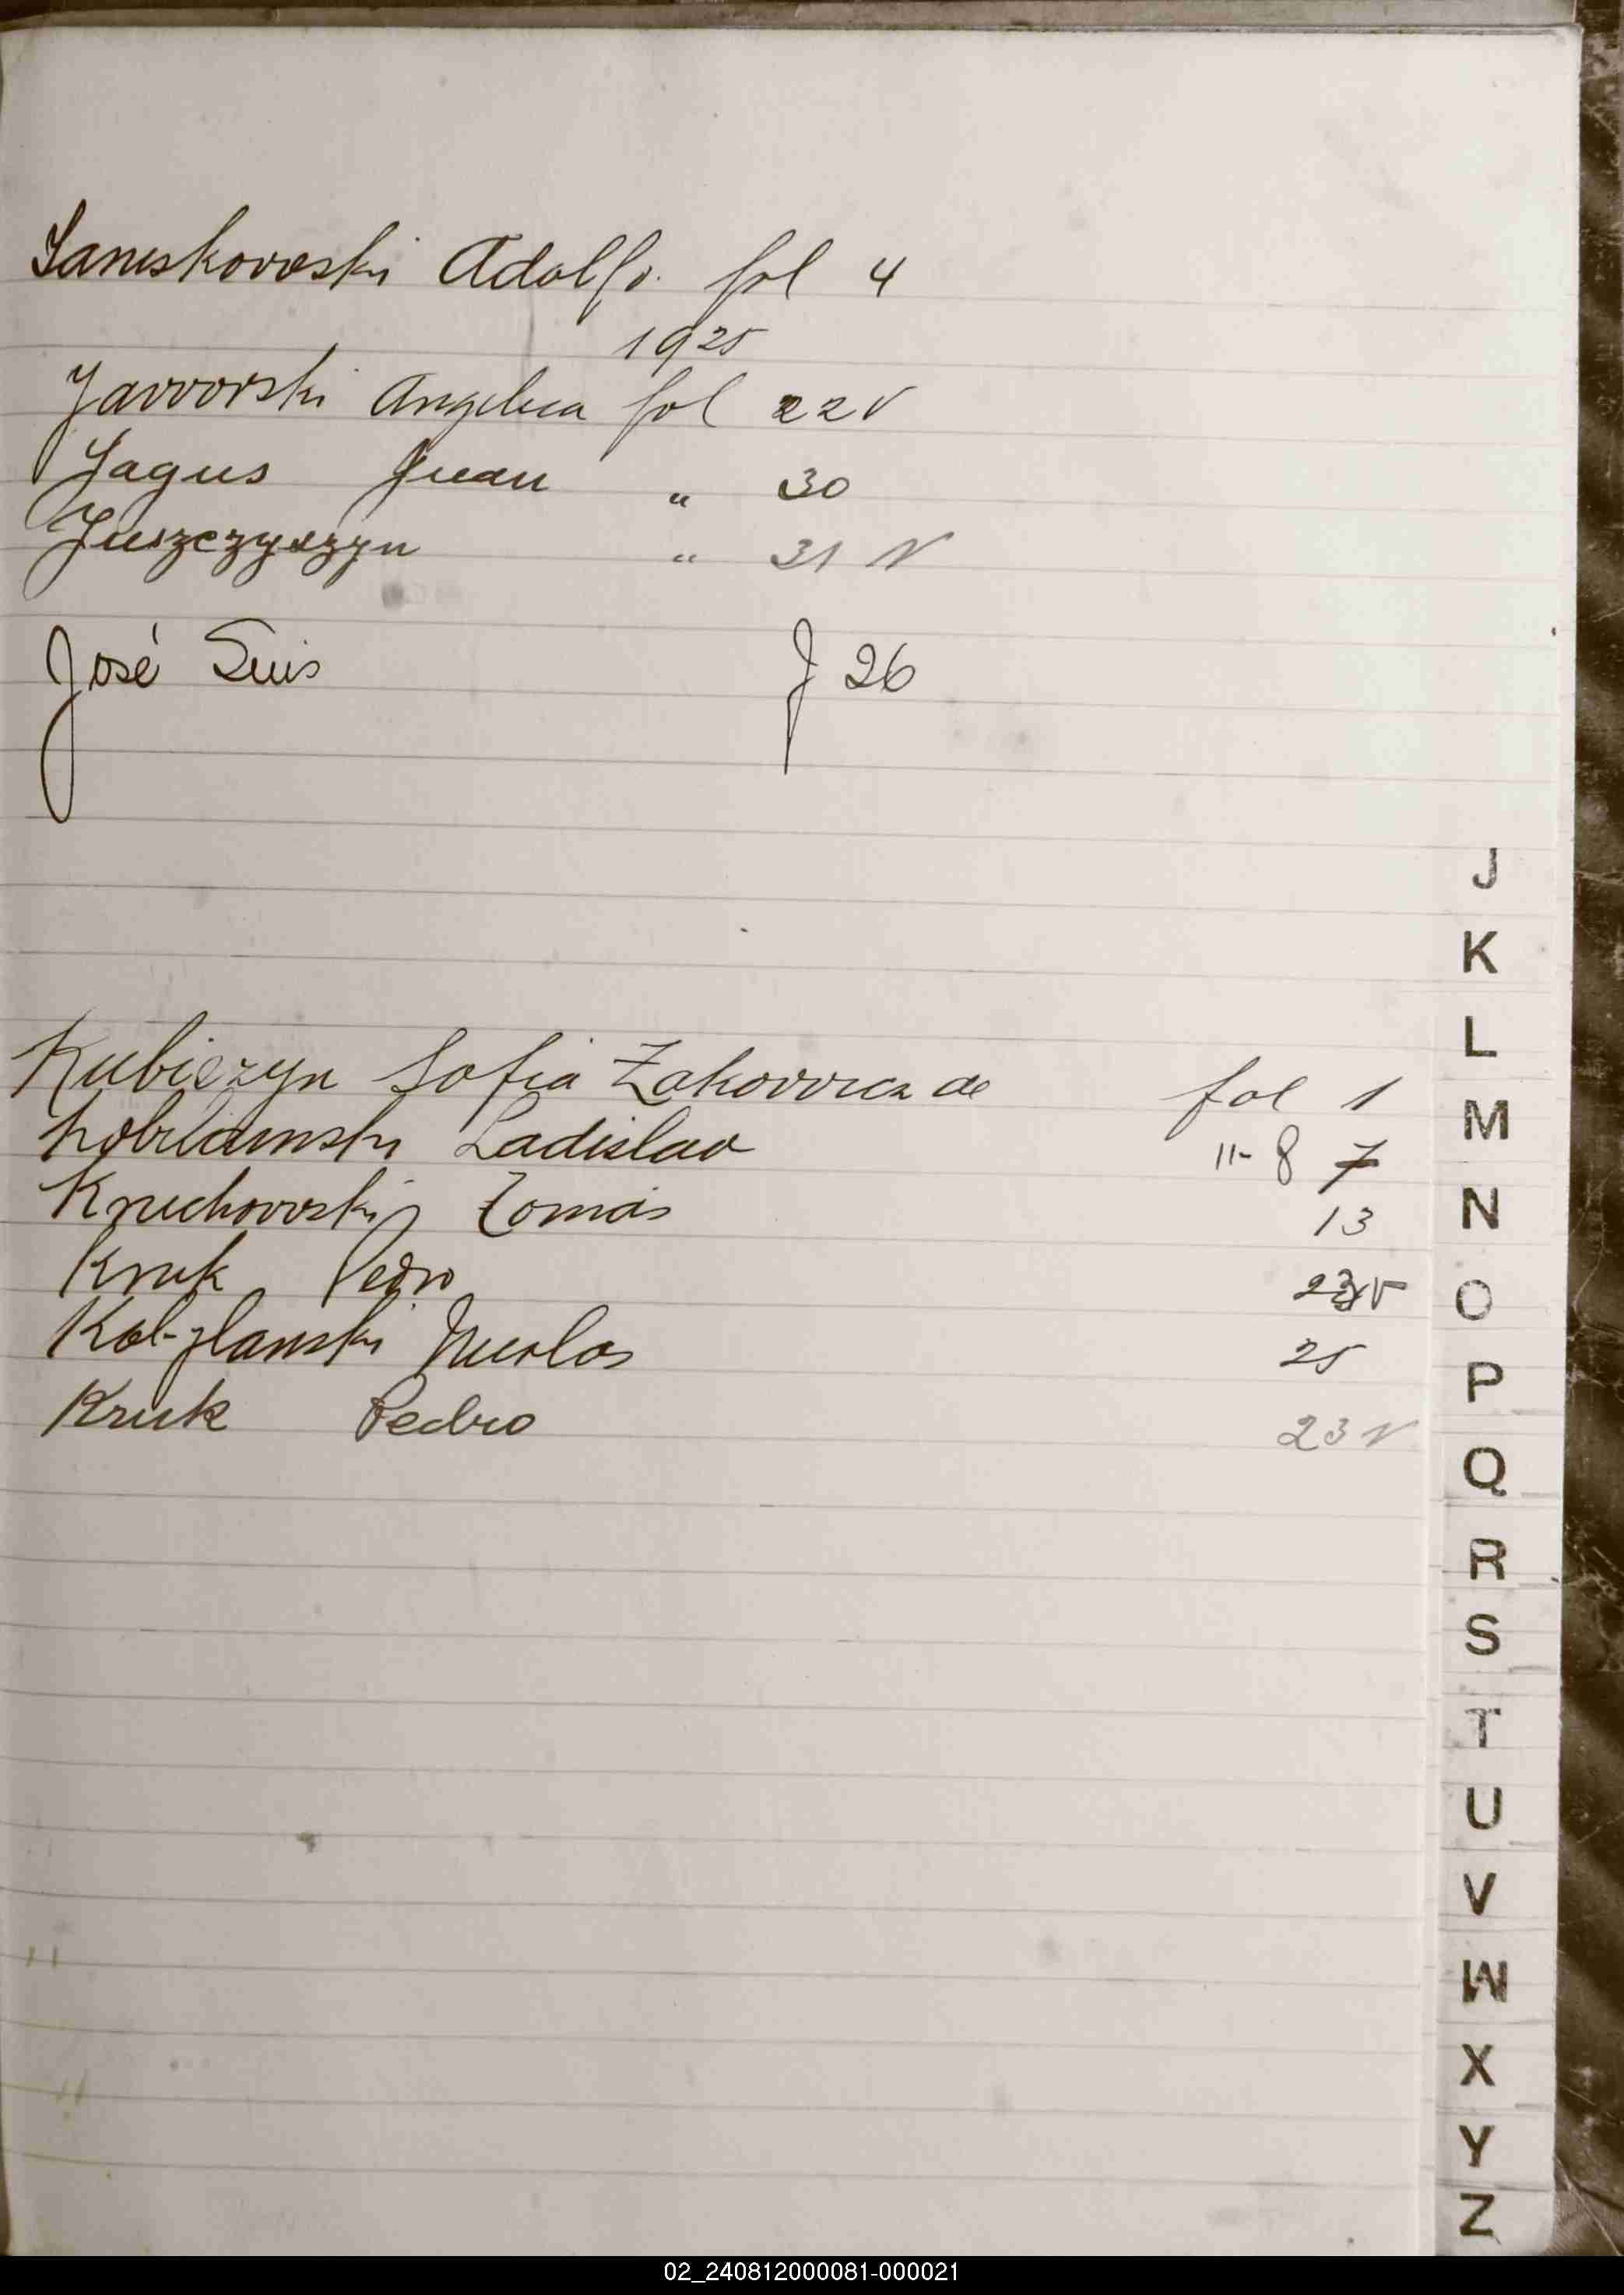 Janiskowski Adolfo. fol 4
1925
Jaworski Angelica fol 22V
Jagus Juan " 30
Juszczyszyn " 31 V
José Luis f 26
Kubiszyn Sofia Zakowicz de fol 1
Ladislao 11- 8 7
Kruchowski Tomás 13
Kruk Pedro 23V
Nicolas 25
Kruk Pedro 23 V
J
K
L
M
N
O
P
Q
R
S
T
U
V
W
X
Y
Z
02_240812000081-000021